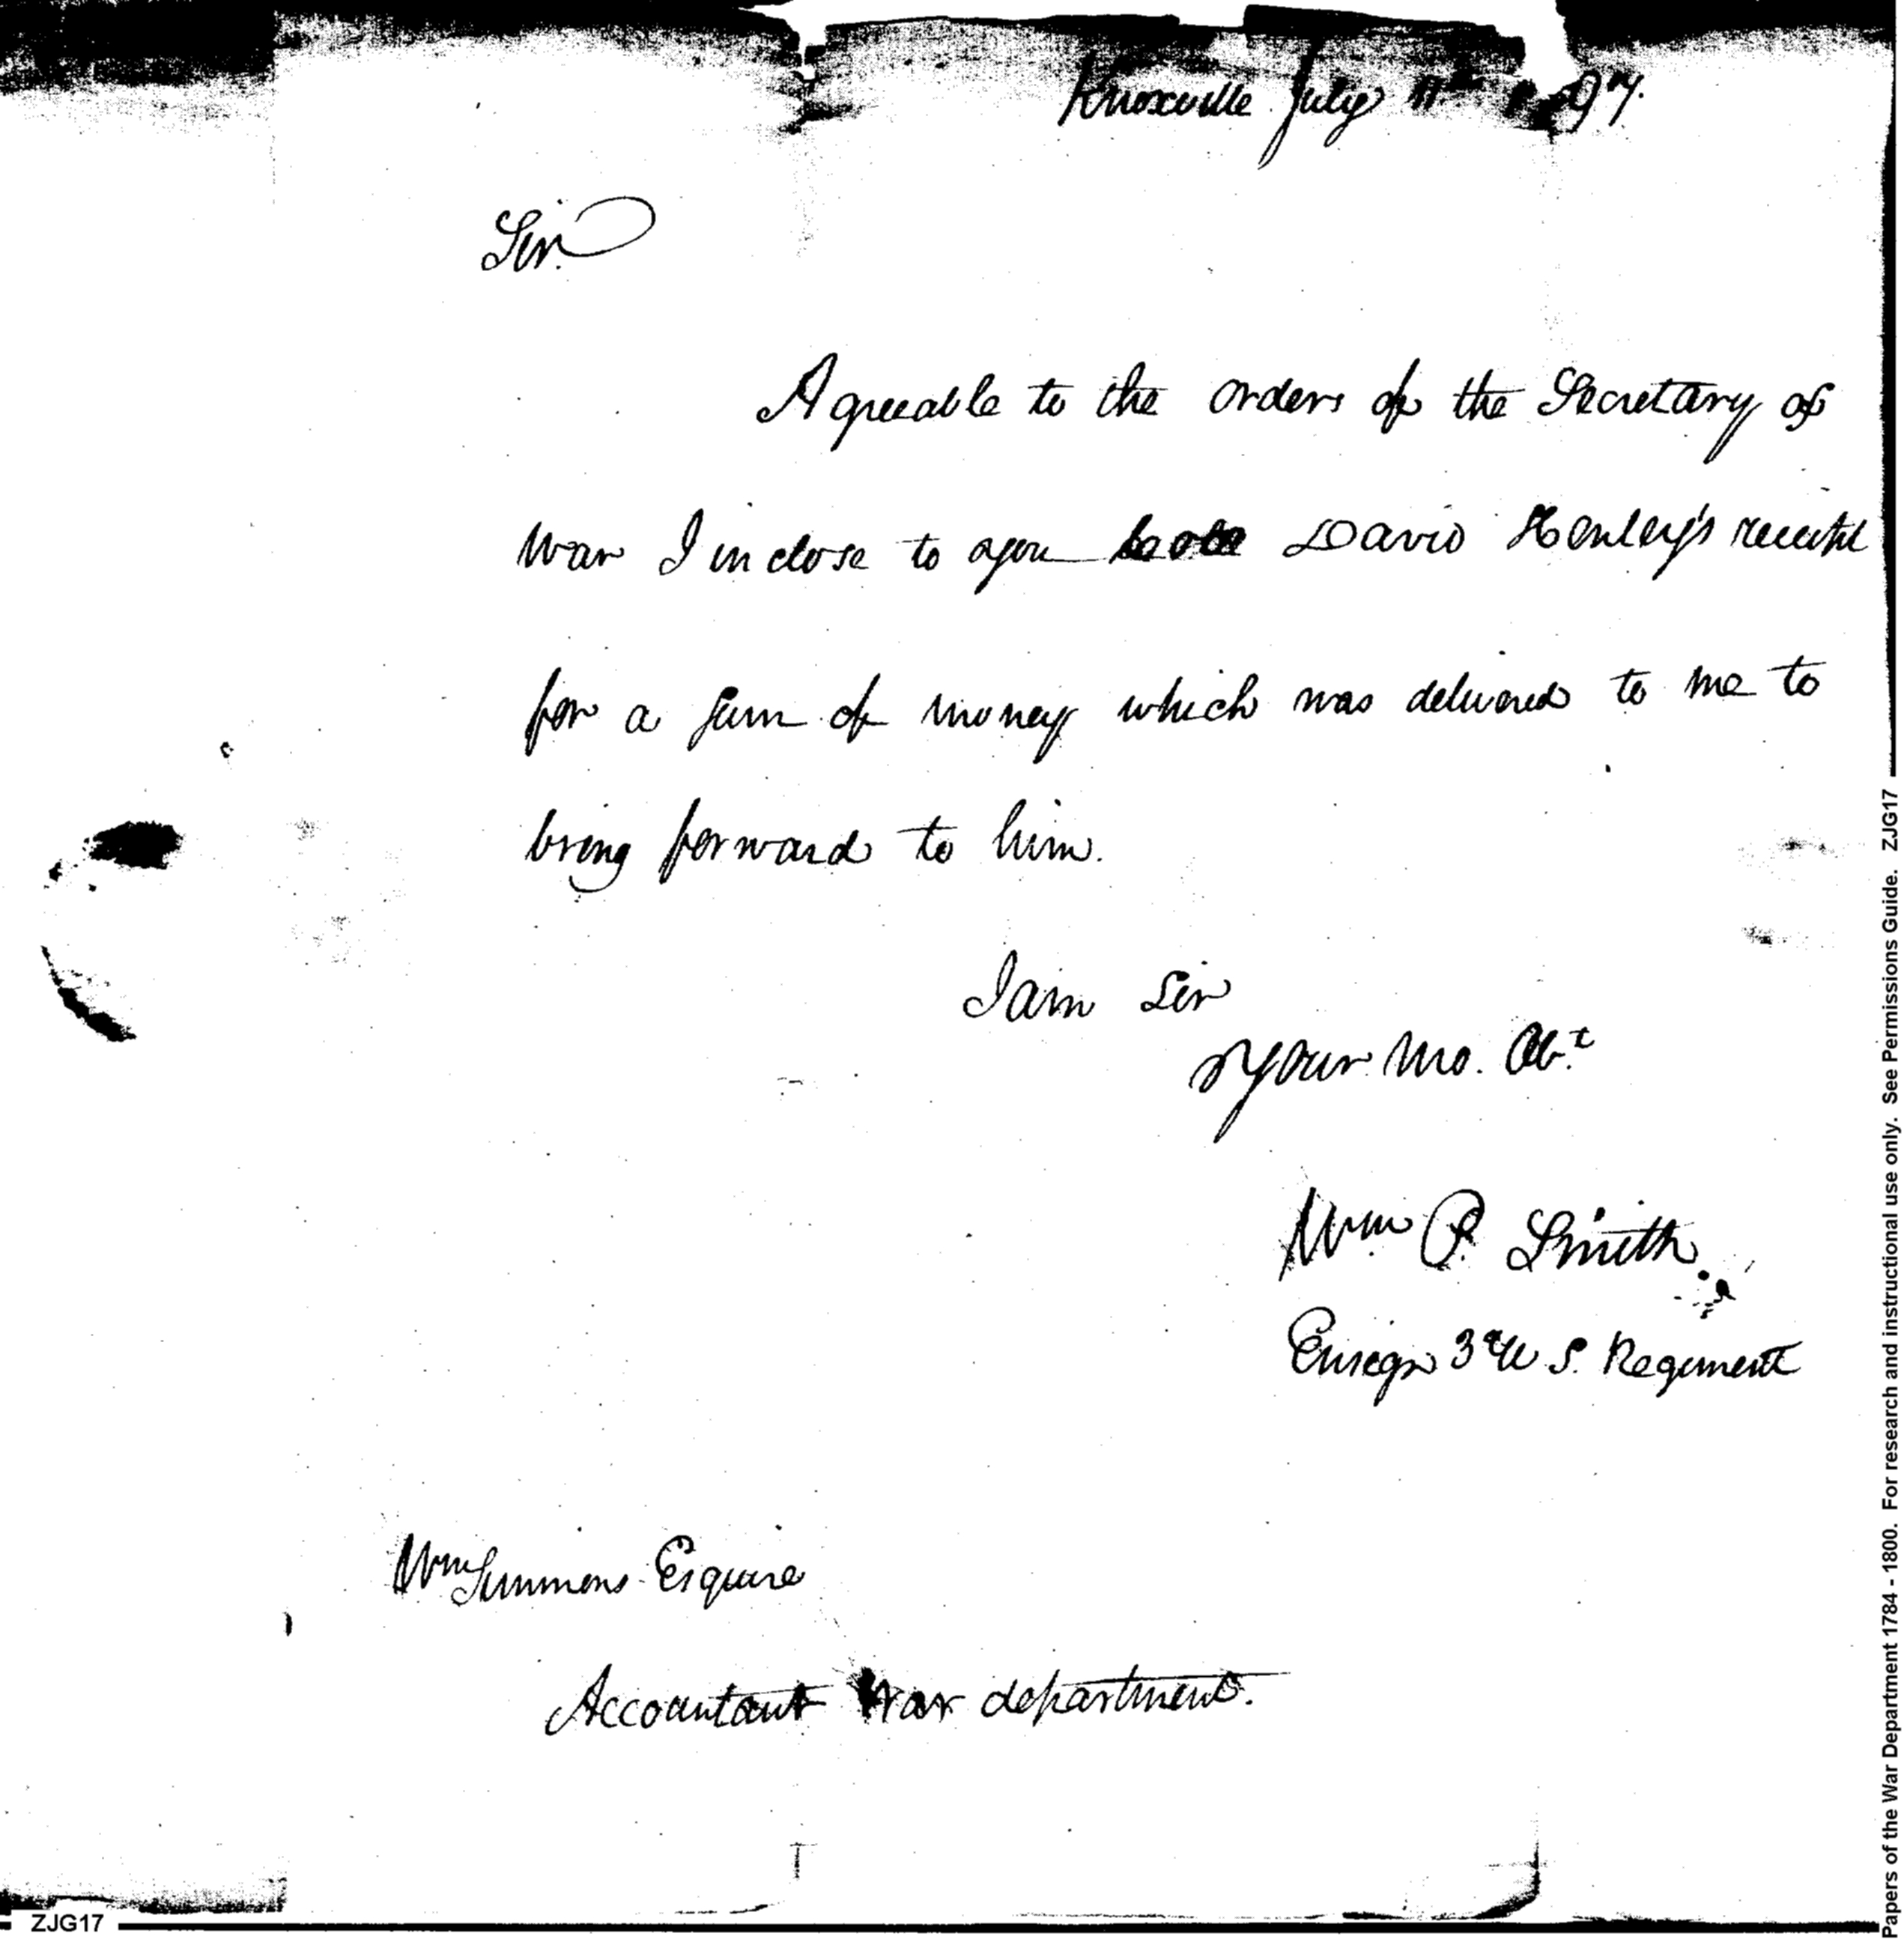 Knoxville July 11th 1797.
Sir.
Agreeable to the orders of the Secretary of
War I inclose to you David Henley's receipt
for a sum of money which was delivered to me to
bring forward to him.
I am Sir
Your Mo. Obt
Wm P. Smith.
Ensign 3d U S. Regiment
Wm Simmons Esquire
Accountant War department.
ZJG17
Papers of the War Department 1784 - 1800. For research and instructional use only. See Permissions Guide. ZJG17